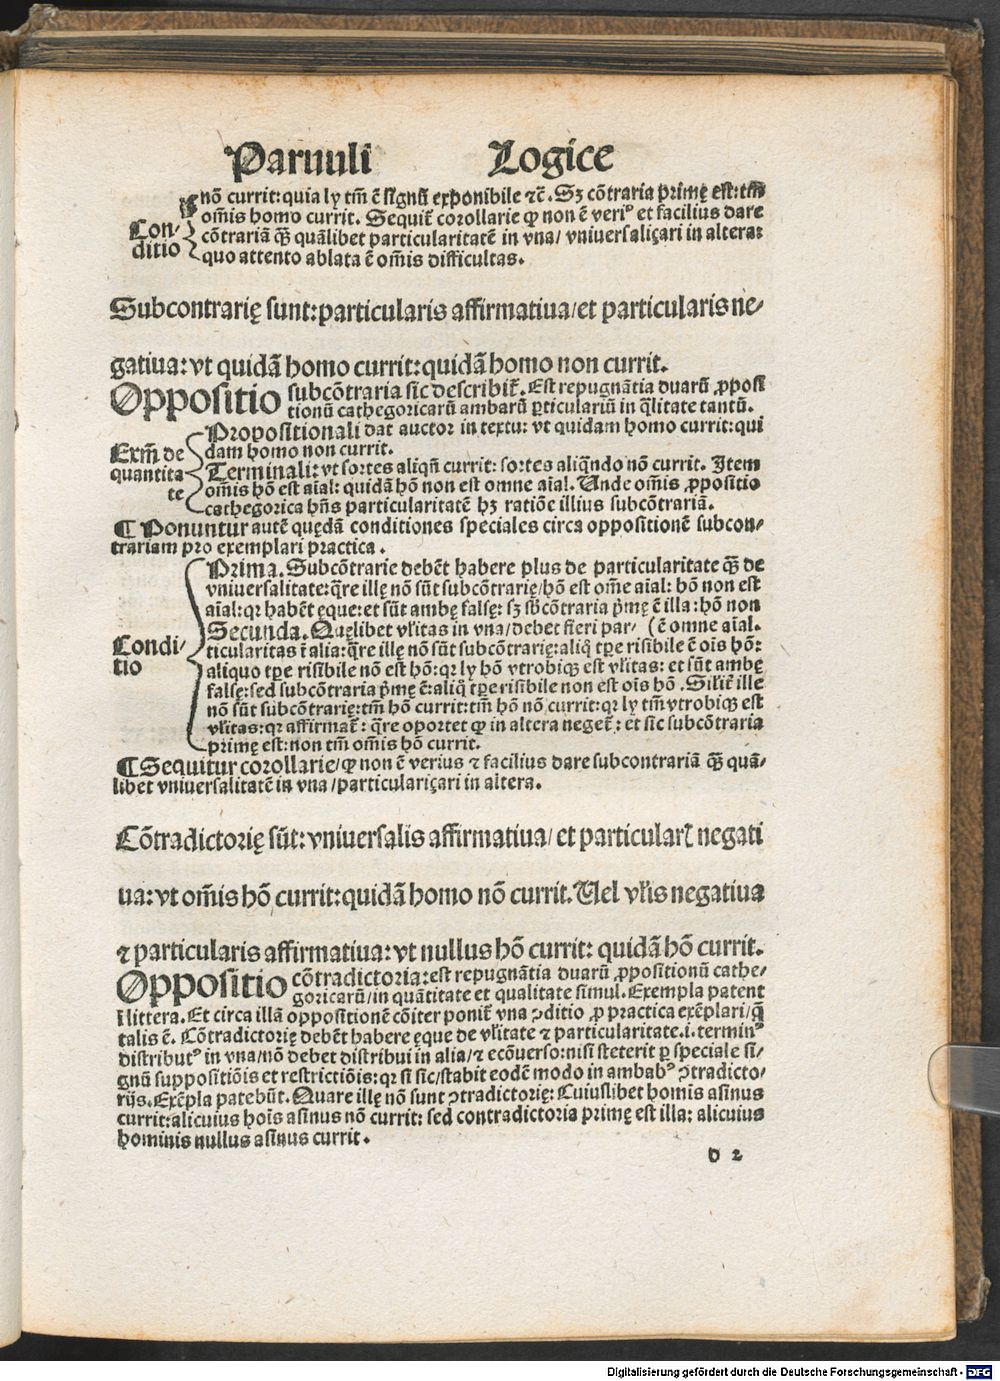 Paruuli Logice
nõ currit: quia ly tm̃ ē signũ exponibile ⁊c̃. Sꝫ cõtraria primę est: tm̃
omĩs homo currit. Sequit᷑ corollarie ꝙ non ē veriꝰ et facilius dare
Con-
ditio
cõtrariã ꝗ̃ quãlibet particularitatẽ in vna/ vniuersaliçari in altera:
quo attento ablata ē omĩs difficultas.
Subcontrarię sunt: particularis affirmatiua/ et particularis ne-
gatiua: vt quidã homo currit: quidã homo non currit.
Oppositio subcõtraria sic describit᷑. Est repugnãtia duarũ ꝓposi
tionũ cathegoricarũ ambarũ ꝑticulariũ in q̃litate tantũ.
Exm̃ de
quantita
te
Propositionali dat auctor in textu: vt quidam homo currit: qui
dam homo non currit.
Terminali: vt sortes aliqñ currit: sortes aliq̃ndo nõ currit. Item
om̃is hõ est aĩal: quidã hõ non est omne aĩal. Unde om̃is ꝓpositio
cathegorica hñs particularitatẽ hꝫ ratiõe illius subcõtrariã.
¶ Ponuntur autẽ quędã conditiones speciales circa oppositionẽ subcon-
trariam pro exemplari practica.
Condi-
tio
Prima. Subcõtrarie debẽt habere plus de particularitate ꝗ̃ de
vniuersalitate: q̃re illę nõ sũt subcõtrarię/ hõ est om̃e aĩal: hõ non est
aĩal: qꝛ habẽt ęque: et sũt ambę falsę: sꝫ sb̃cõtraria p̃mę ē illa: hõ non
Secunda. Quęlibet vl̃itas in vna/ debet fieri par- (ē omne aĩal.
ticularitas ĩ alia: q̃re illę nõ sũt subcõtrarię: aliq̃ tꝑe risibile ē oĩs hõ:
aliquo tꝑe risibile nõ est hõ: qꝛ ly hõ vtrobiqꝫ est vl̃itas: et sũt ambę
falsę: sed subcõtraria p̃mę ē: aliq̃ tꝑe risibile non est oĩs hõ. Silit᷑ ille
nõ sũt subcõtrarię: tm̃ hõ currit: tm̃ hõ nõ currit: qꝛ ly tm̃ vtrobiqꝫ est
vl̃itas: qꝛ affirmat᷑: q̃re oportet ꝙ in altera neget᷑: et sic subcõtraria
primę est: non tm̃ om̃is hõ currit.
¶ Sequitur corollarie/ ꝙ non ē verius ⁊ facilius dare subcontrariã ꝗ̃ quã-
libet vniuersalitatẽ in vna/ particulariçari in altera.
Cõtradictorię sũt: vniuersalis affirmatiua/ et particularꝭ negati
ua: vt om̃is hõ currit: quidã homo nõ currit. Uel vl̃is negatiua
⁊ particularis affirmatiua: vt nullus hõ currit: quidã hõ currit.
Oppositio cõtradictoria: est repugnãtia duarũ ꝓpositionũ cathe-
goricarũ/ in quãtitate et qualitate simul. Exempla patent
ĩ littera. Et circa illã oppositionẽ cõiter ponit᷑ vna ꝯditio ꝓ practica exẽplari/ q̃
talis ē. Cõtradictorię debẽt habere ęque de vl̃itate ⁊ particularitate. i. terminꝰ
distributꝰ in vna/ nõ debet distribui in alia/ ⁊ ecõuerso: nisi steterit ꝑ speciale si-
gnũ suppositiõis et restrictiõis: qꝛ si sic/ stabit eodẽ modo in ambabꝰ ꝯtradicto-
rijs. Exẽpla patebũt. Quare illę nõ sunt ꝯtradictorię: Cuiuslibet homĩs asinus
currit: alicuius hoĩs asinus nõ currit: sed contradictoria primę est illa: alicuius
hominis nullus asinus currit.
d 2
Digitalisierung gefördert durch die Deutsche Forschungsgemeinschaft - DFG